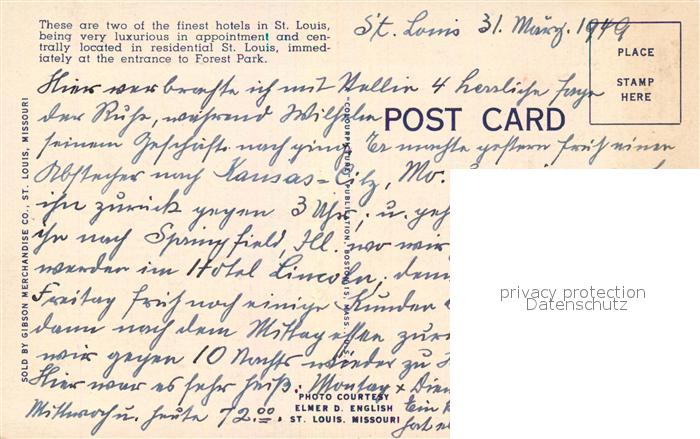 These are two of the finest hotels in St. Louis,
being very luxurious in appointment and cen-
trally located in residential St. Louis, immed-
iately at the entrance to Forest Park.
St. Louis 31. März. 1949
PLACE
STAMP
HERE
POST CARD
Hier verbrachte ich mit Nellie 4 herrliche Tage
der Ruhe, während Wilhelm
seinem Geschäft nach ging. Er machte gestern früh einen
Abstecher nach Kansas-City, Mo.
ihn zurück gegen 3 Uhr, u.
ihr nach Springfield, Ill. wo wir
werden im Hotel Lincoln,
Freitag früh noch einige Kunden
dann nach dem Mittagessen
wir gegen 10 Nachts wieder zu
Hier war es sehr heiß, Montag
Mittwoch u. heute 72.00.
SOLD BY GIBSON MERCHANDISE CO., ST. LOUIS, MISSOURI
COLOURPICTURE PUBLICATION, BOSTON 15, MASS., U.S.
PHOTO COURTESY
ELMER D. ENGLISH
ST. LOUIS, MISSOURI
privacy protection
Datenschutz